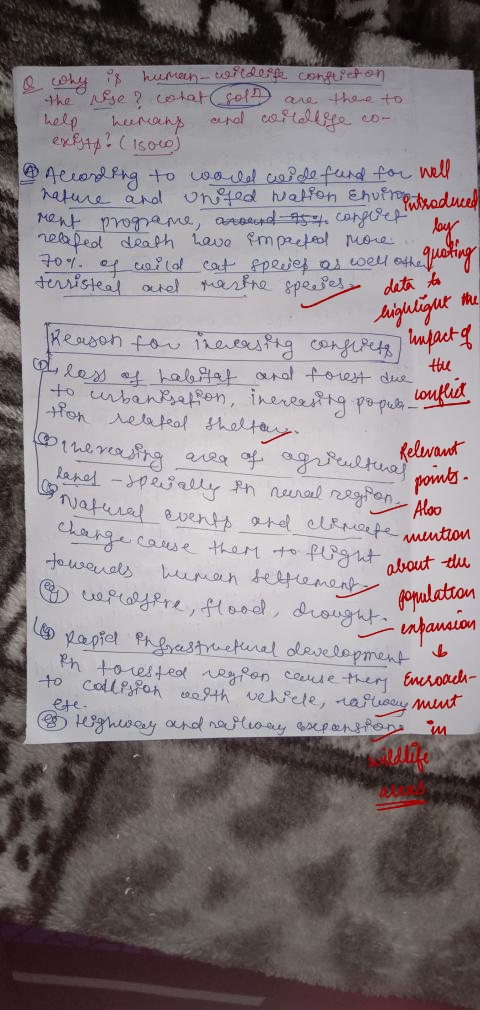 Q why is human-wildlife conflict on
the rise? what soln are there to
help humans and wildlife co-
exists? (150w)
A According to world wide fund for
nature and united Nation Environ
ment programe, around 75% conflict
related death have impacted more
70% of wild cat species as well other
terristeal and marine species.
Reason for increasing conflicts
(1) Loss of habitat and forest due
to urbanisation, increasing popula-
tion related shelter.
(2) Increasing area of agricultural
land - specially in rural region.
(3) Natural events and climate
change cause them to flight
towards human settlement.
eg wildfire, flood, drought.
(4) Rapid infrastructural development
in forested region cause them
to collision with vehicle, railway
etc.
eg Highway and railway expansion
well
introduced
by
quoting
data to
highlight the
impact of
the
conflict
Relevant
points.
Also
mention
about the
population
expansion
↓
Encroach-
ment
in
wildlife
areas